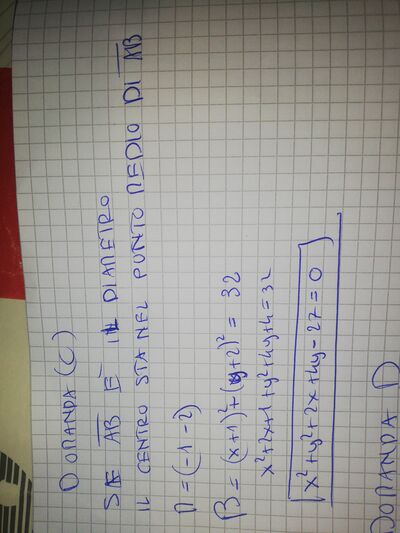 DOMANDA (C)
SE AB E' IL DIAMETRO
IL CENTRO STA NEL PUNTO MEDIO DI AB
M = (-1 -2)
β = (x+1)² + (y+2)² = 32
x²+2x+1+y²+4y+4=32
x²+y²+2x+4y-27=0
DOMANDA D